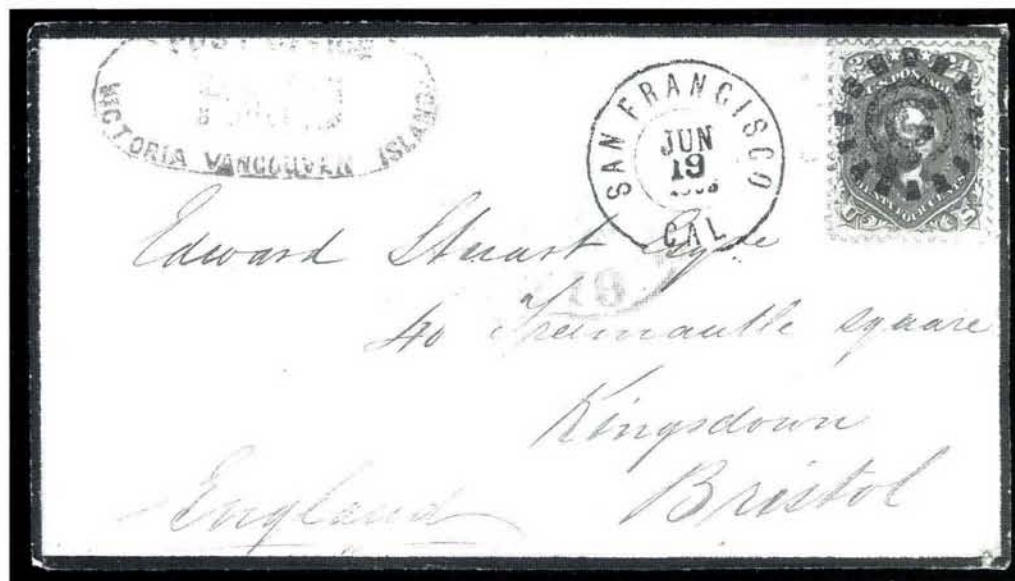 POST OFFICE
PAID
VICTORIA VANCOUVER ISLAND
SAN FRANCISCO
JUN
19
CAL
24 24
U.S. POSTAGE
TWENTY FOUR CENTS
U S
Edward Stuart
19
40 Freemantle square
Kingsdown
Bristol
England